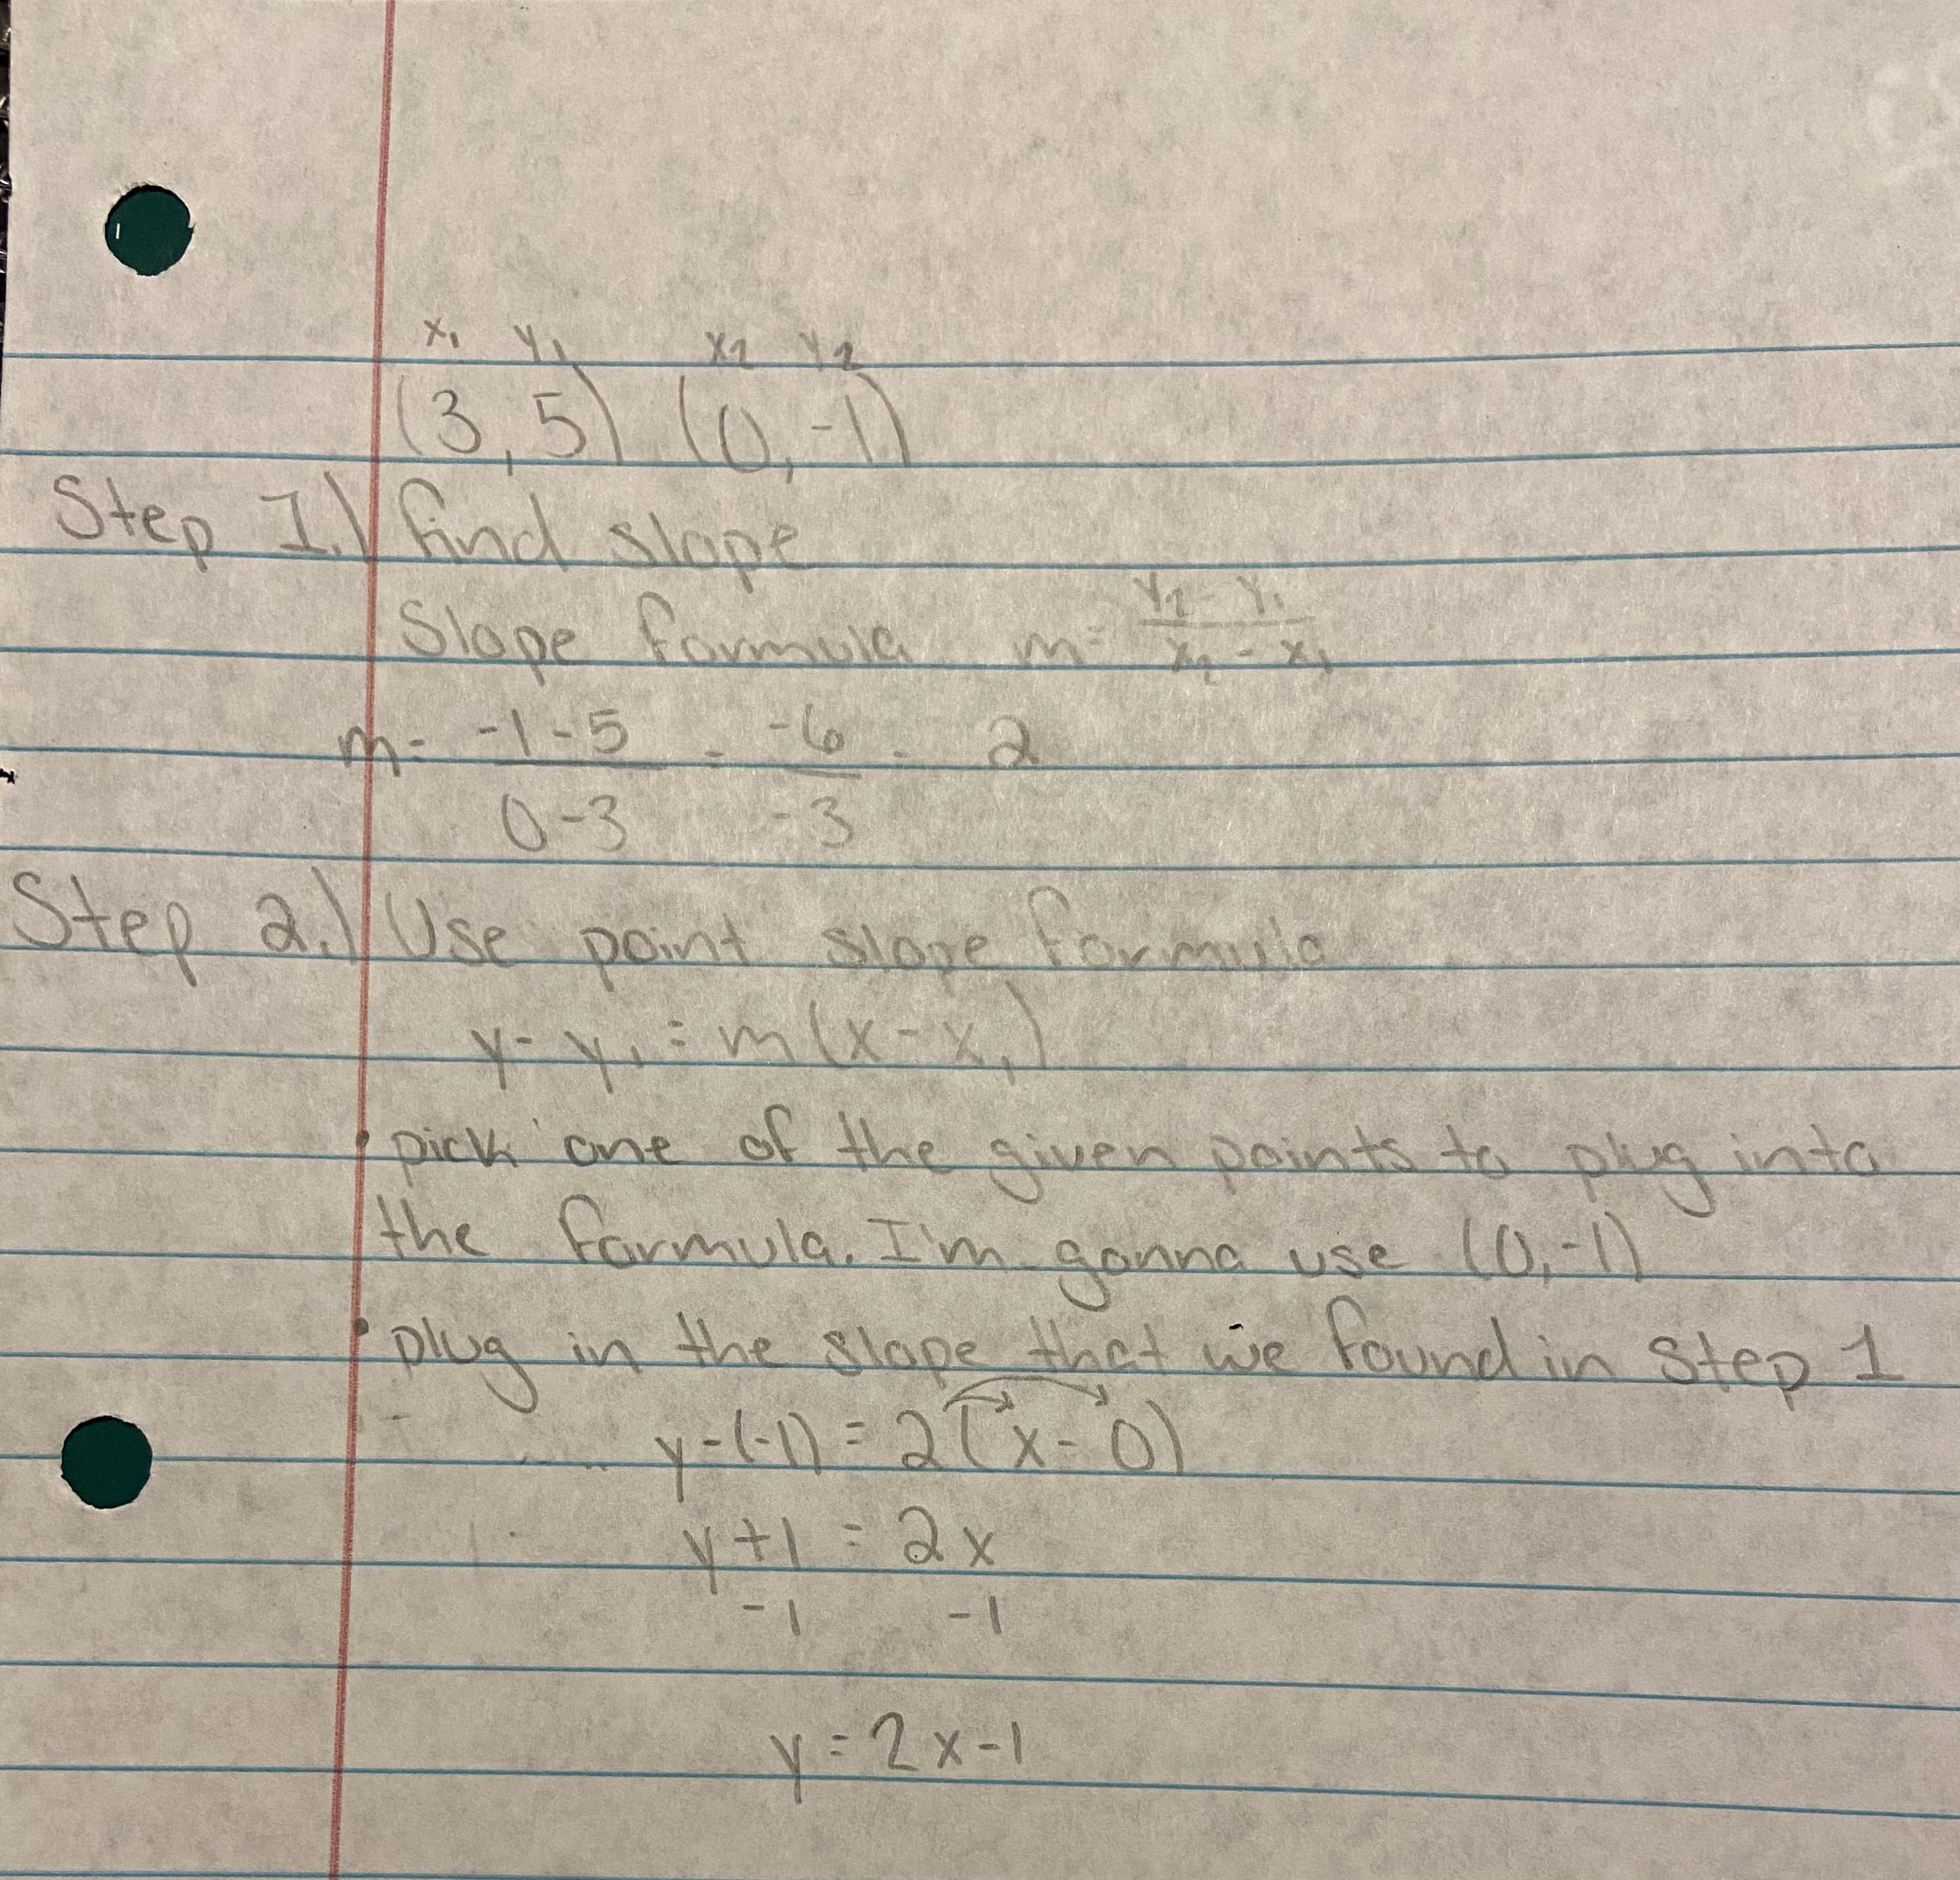 x₁ y₁ x₂ y₂
(3, 5) (0, -1)
Step 1.) find slope
Slope formula m = (y₂ - y₁)/(x₂ - x₁)
m = (-1 - 5)/(0 - 3) = (-6)/(-3) = 2
Step 2.) Use point slope formula
y - y₁ = m(x - x₁)
• pick one of the given points to plug into
the formula. I'm gonna use (0, -1)
• plug in the slope that we found in Step 1
y - (-1) = 2(x - 0)
y + 1 = 2x
-1 -1
y = 2x - 1